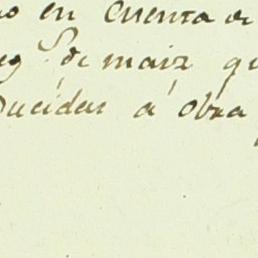 en Cuenta de
de maiz qu
ducidas á obra